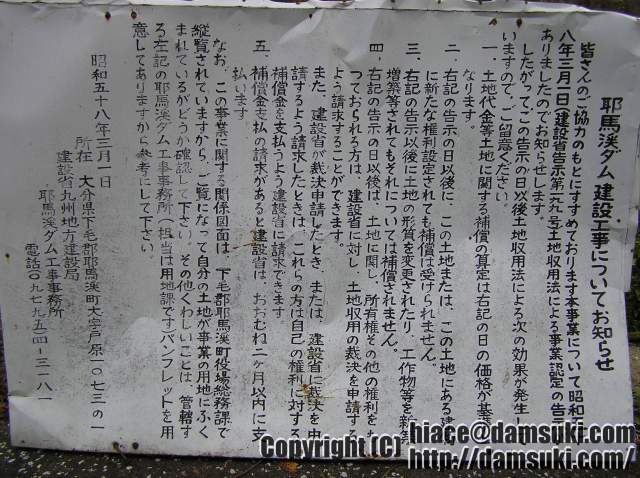 耶馬渓ダム建設工事についてお知らせ
皆さんのご協力のもとにすすめております本事業について昭和五十
八年三月一日(建設省告示第 号)土地収用法による事業認定の告示が
ありましたのでお知らせします。
したがって、この告示の日以後土地収用法による次の効果が発生
いますので、ご留意ください。
一、土地代金等土地に関する補償の算定は右記の日の価格が基
なります。
二、右記の告示の日以後に、この土地または、この土地にある建
に新たな権利設定されても補償は受けられません。
三、右記の告示以後に土地の形質を変更されたり、工作物等を新
増築等されてもそれについては補償されません。
四、右記の告示の日以後は、土地に関し、所有権その他の権利をも
つておられる方は、建設省に対し、土地収用の裁決を申請する
よう請求することができます。
また、建設省が裁決申請したとき、または、建設省に裁決を申
請するよう請求したときは、これらの方は自己の権利に対する
補償金を支払うよう建設省に請求できます。
五、補償金支払の請求があると建設省は、おおむね二ヶ月以内に支
払います。
なお、この事業に関する関係図面は、下毛郡耶馬渓町役場総務課で
縦覧されていますから、ご覧になって自分の土地が事業の用地にふく
まれているかどうか確認して下さい。その他くわしいことは、管轄す
る左記の耶馬渓ダム工事事務所へ(担当は用地課です)パンフレットを用
意してありますから参考にして下さい。
昭和五十八年三月一日
所在 大分県下毛郡耶馬渓町大字戸原一〇七三の一
建設省九州地方建設局
耶馬渓ダム工事事務所
電話〇九七九五)四-三一八一
Copyright (C) hiace@damsuki.com
http://damsuki.com/